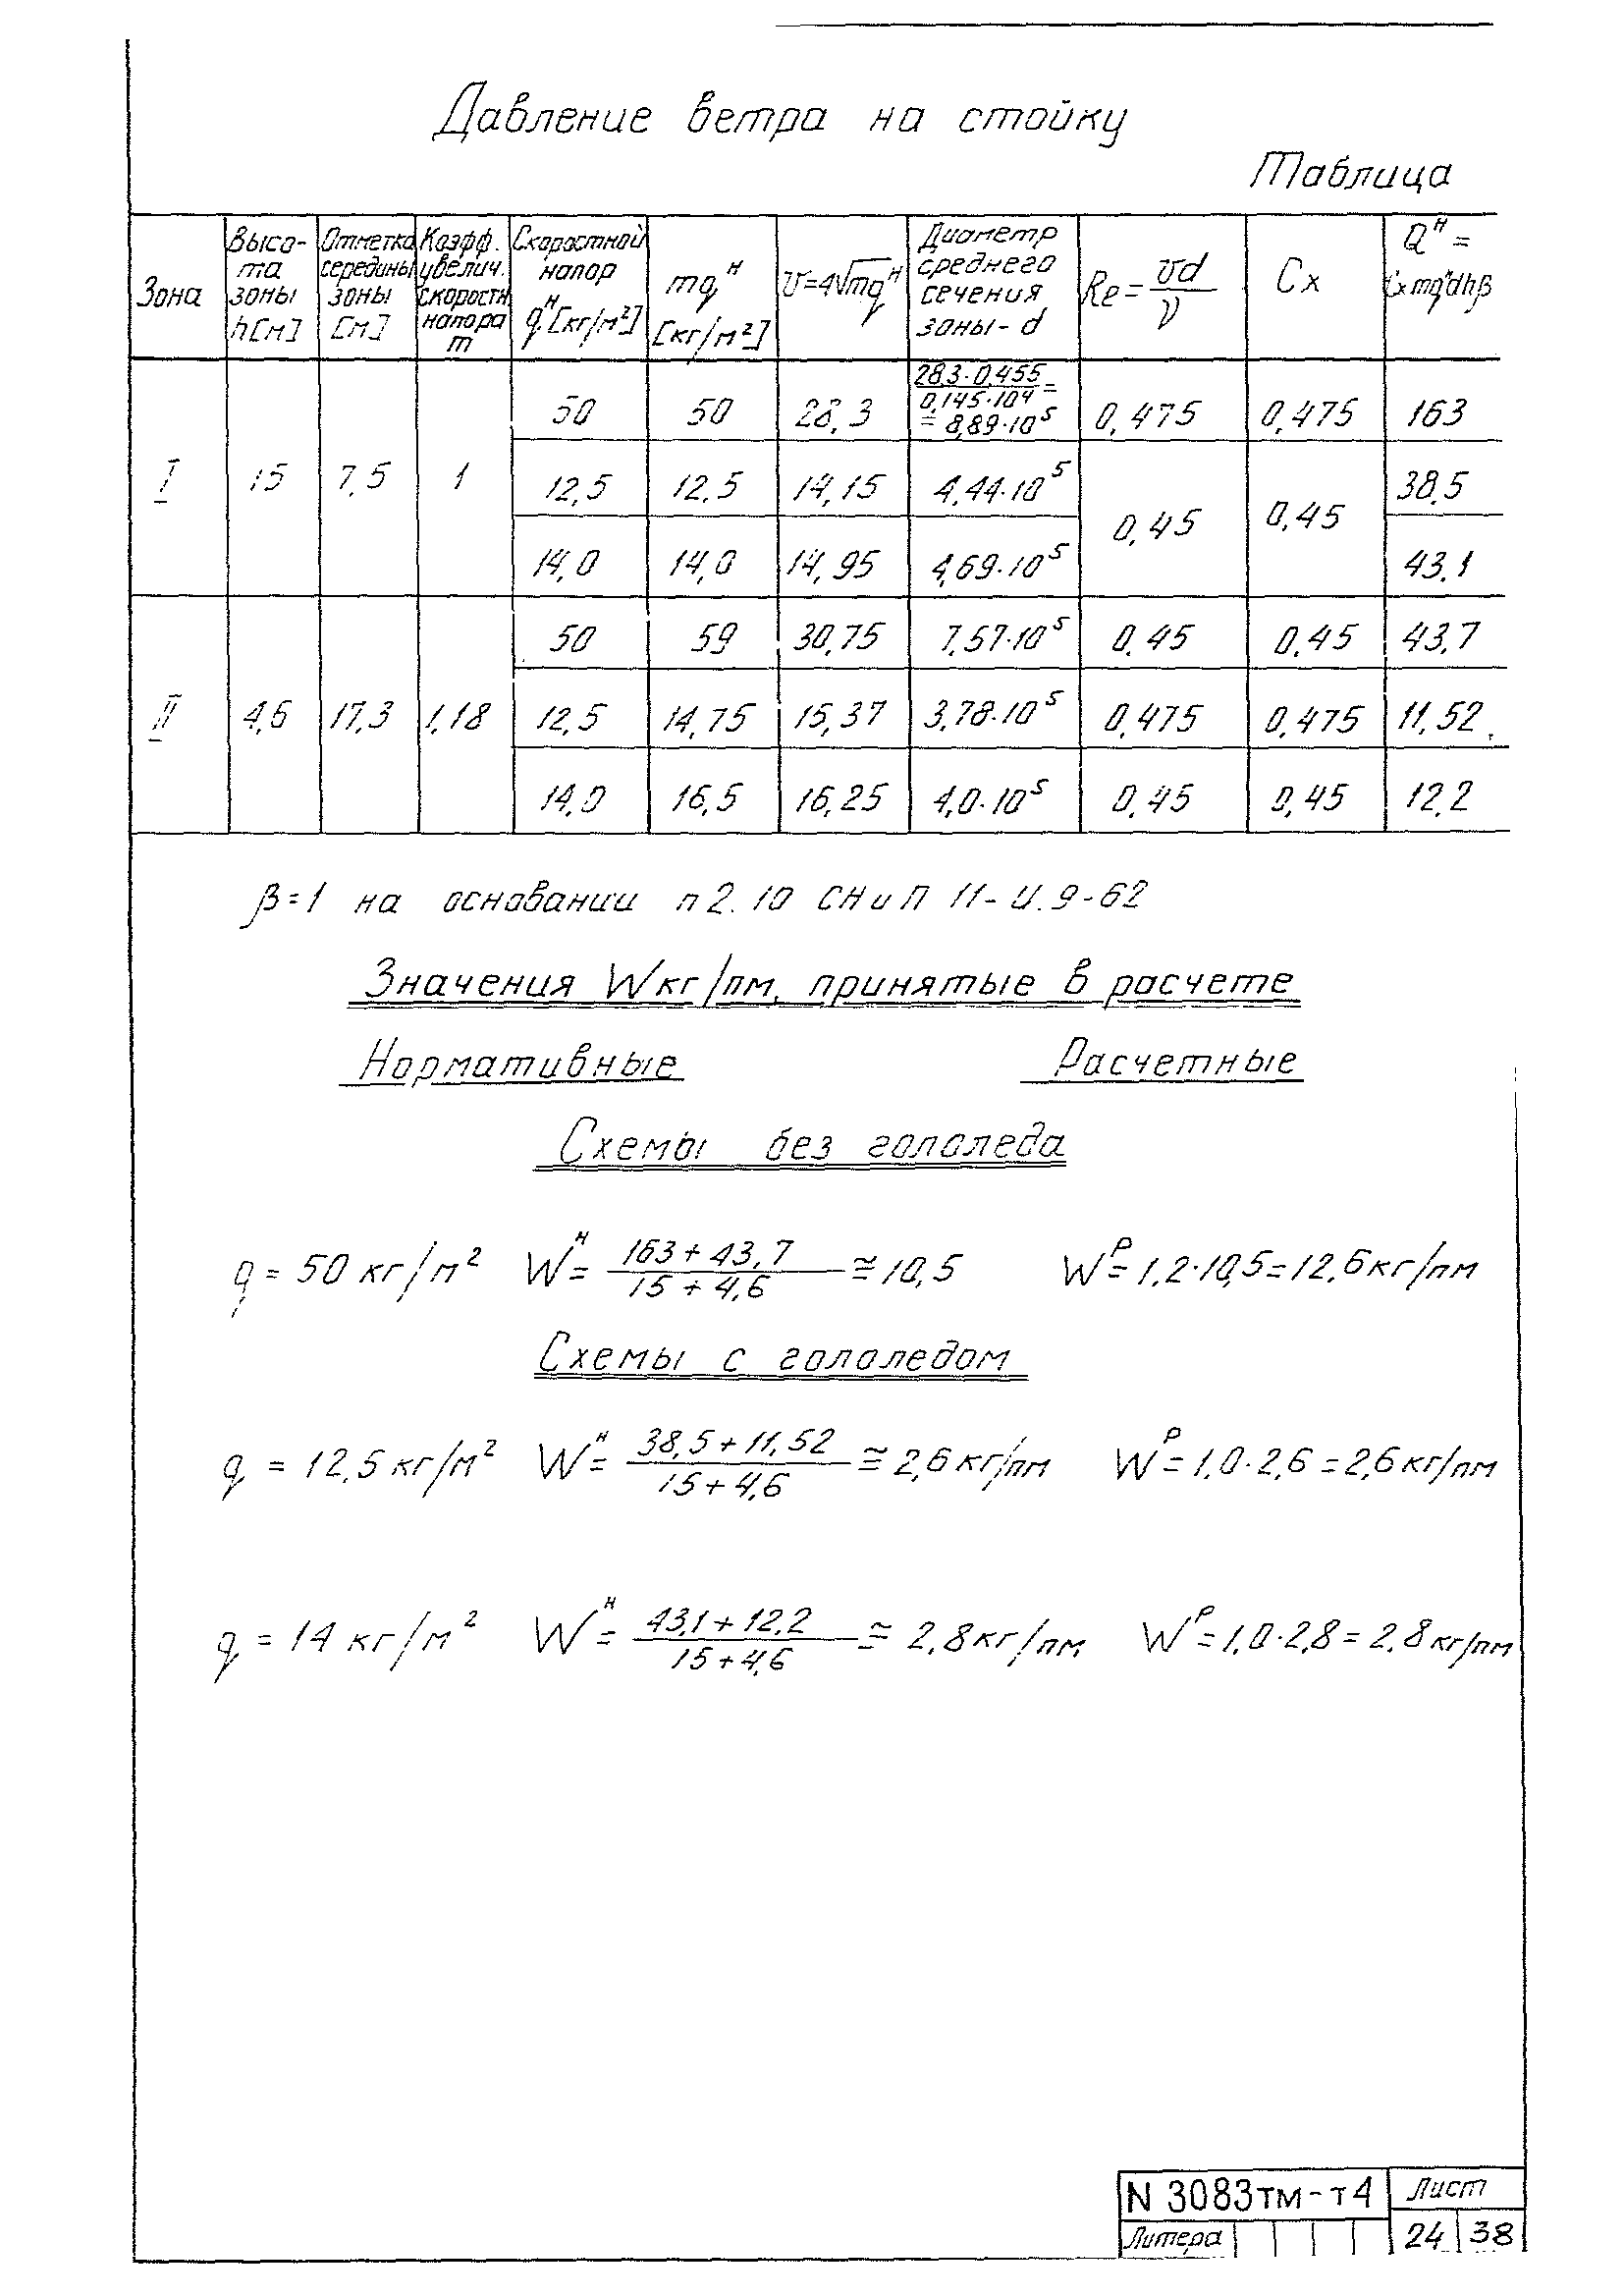 Давление ветра на стойку
Таблица
Зона
Высо-
та
зоны
h[м]
Отметка
середины
зоны
[м]
Коэфф.
увелич.
скоростн
напора
m
Скоростной
напор
qᴴ[кг/м²]
mqᴴ
[кг/м²]
v=4√mqᴴ
Диаметр
среднего
сечения
зоны-d
Re=vd/ν
Cx
Qᴴ=
Cxmqᴴdhβ
I 15 7,5 1
50 50 28,3 28,3·0,455/0,145·10⁴= 0,475 0,475 163
=8,89·10⁵
12,5 12,5 14,15 4,44·10⁵ 0,45 0,45 38,5
14,0 14,0 14,95 4,69·10⁵ 43,1
II 4,6 17,3 1,18
50 59 30,75 7,57·10⁵ 0,45 0,45 43,7
12,5 14,75 15,37 3,78·10⁵ 0,475 0,475 11,52
14,0 16,5 16,25 4,0·10⁵ 0,45 0,45 12,2
β=1 на основании п2.10 СНиП II-И.9-62
Значения Wкг/пм, принятые в расчете
Нормативные Расчетные
Схемы без гололеда
q=50 кг/м² Wᴴ=163+43,7/15+4,6≅10,5 Wᴾ=1,2·10,5=12,6кг/пм
Схемы с гололедом
q=12,5кг/м² Wᴴ=38,5+11,52/15+4,6≅2,6кг/пм Wᴾ=1,0·2,6=2,6кг/пм
q=14 кг/м² Wᴴ=43,1+12,2/15+4,6≅2,8кг/пм Wᴾ=1,0·2,8=2,8кг/пм
N 3083тм-т4 Лист
Литера 24 38